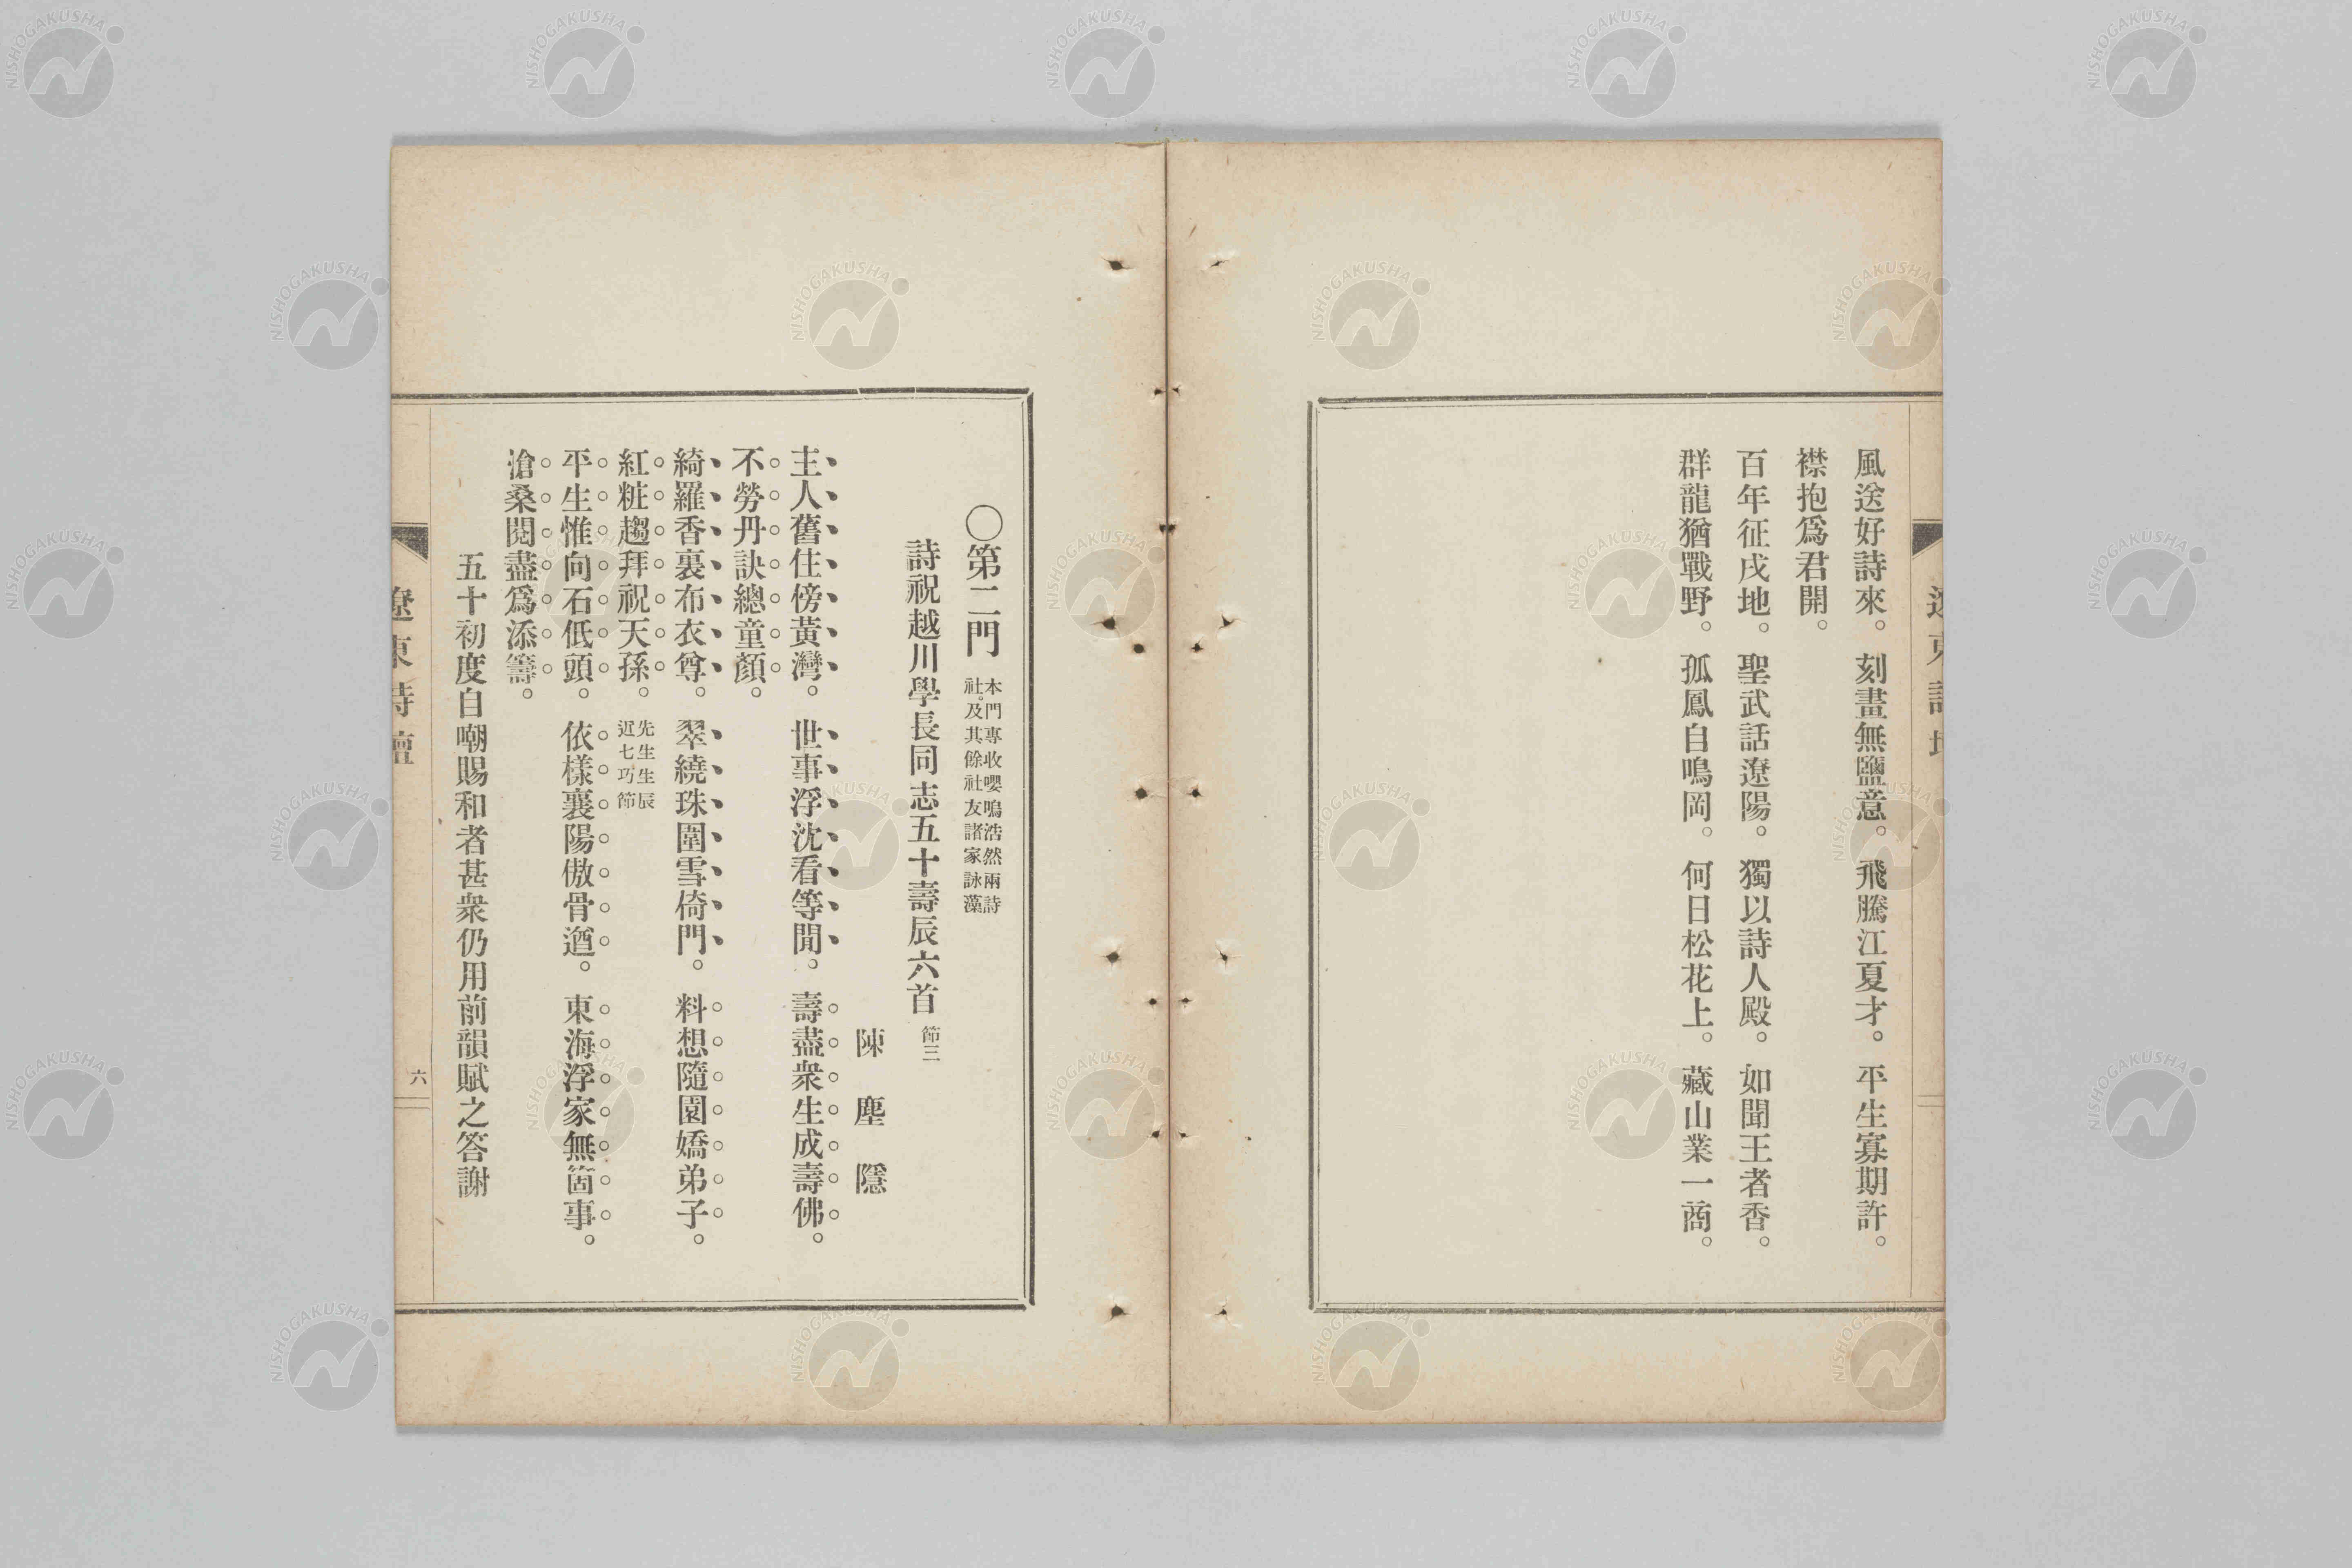 風送好詩來。刻畫無鹽意。飛騰江夏才。平生寡期許。
襟抱爲君開。
百年征戍地。聖武話遼陽。獨以詩人殿。如聞王者香。
群龍猶戰野。孤鳳自鳴岡。何日松花上。藏山業一商。
〇第二門
本門專收嚶鳴浩然兩詩
社。及其餘社友諸家詠藻
詩祝越川學長同志五十壽辰六首 節三
陳塵隱
主人舊住傍黃灣。世事浮沈看等閒。壽盡衆生成壽佛。
不勞丹訣總童顏。
綺羅香裏布衣尊。翠繞珠圍雪倚門。料想隨園嬌弟子。
紅粧趨拜祝天孫。
先生生辰
近七巧節
平生惟向石低頭。依樣襄陽傲骨遒。東海浮家無箇事。
滄桑閱盡爲添籌。
五十初度自嘲賜和者甚衆仍用前韻賦之答謝
遼東詩壇
六
NISHOGAKUSHA